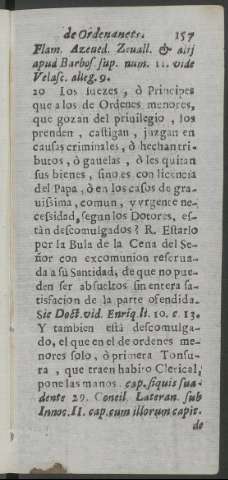 de Ordenanets. 157
Flam. Azeued. Zeuall. & alij
apud Barbos. sup. num. 11. vide
Velasc. alleg. 9.
20 Los Iuezes, ò Principes
que a los de Ordenes menores,
que gozan del priuilegio, los
prenden, castigan, juzgan en
causas criminales, ò hechan tri
butos, ò gauelas, ò les quitan
sus bienes, sino es con licencia
del Papa, ò en los casos de gra
uissima, comun, y vrgente ne-
cessidad, segun los Dotores, es-
tàn descomulgados? R. Estarlo
por la Bula de la Cena del Se-
ñor con excomunion reserua-
da a su Santidad, de que no pue-
den ser absueltos sin entera sa-
tisfacion de la parte ofendida.
Sic Doct. vid. Enriq. li. 10. c. 13.
Y tambien està descomulga-
do, el que en el de ordenes me-
nores solo, ò primera Tonsu-
ra, que traen habito Clerical,
pone las manos. cap. siquis sua-
dente 29. Concil. Lateran. sub
Innoc. II. cap. cum illorum capit.
de